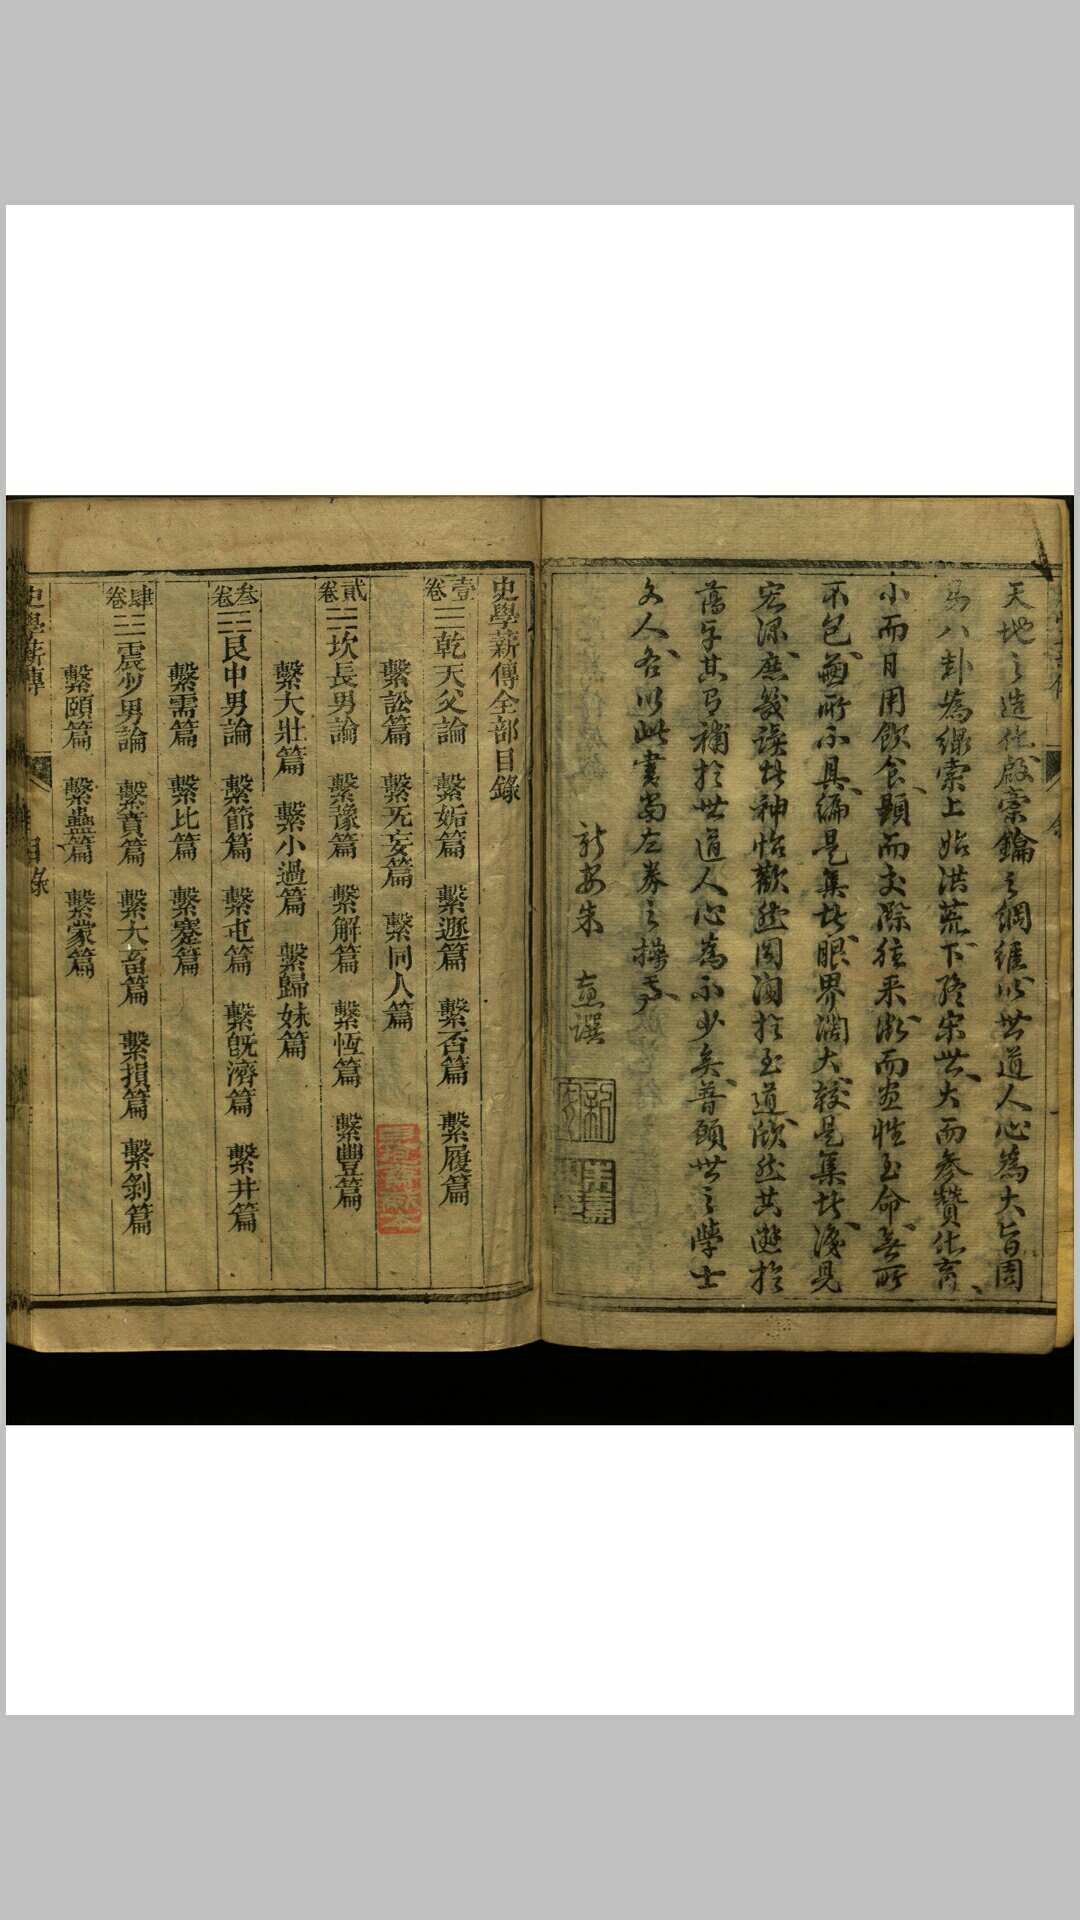 天地之造化啟橐鑰之綱維以世道人心為大旨因
易八卦為線索上始洪荒下終宋世大而參贊化育
小而日用飲食顯而交際往來微而盡性至命無所
不包蓄所不具編是集者眼界濶大較是集者淺見
宏深庶幾讀者神怡歡然囡洵於至道欣然共遊於
舊子其有補於世道人心為不少矣普願世之學士
文人各以此書當左券之操焉
新安朱 譔
史學薪傳全部目錄
壹卷 ☰乾天父論 繫姤篇 繫遯篇 繫否篇 繫履篇
繫訟篇 繫无妄篇 繫同人篇
貳卷 坎長男論 繫豫篇 繫解篇 繫恆篇 繫豐篇
繫大壯篇 繫小過篇 繫歸妹篇
叁卷 艮中男論 繫節篇 繫屯篇 繫既濟篇 繫井篇
繫需篇 繫比篇 繫蹇篇
肆卷 震少男論 繫賁篇 繫大畜篇 繫損篇 繫剝篇
繫頤篇 繫蠱篇 繫蒙篇
史學薪傳 目錄